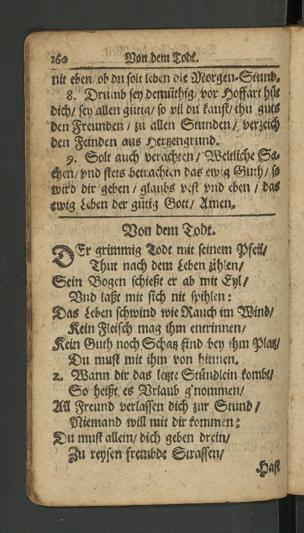 160 Von dem Todt.
nit eben/ ob du solt leben die Morgen-Stund.
8. Drumb sey demüthig/ vor Hoffart hüt
dich/ sey allen gütig/ so vil du kanst/ thu guts
den Freunden/ zu allen Stunden/ verzeich
den Feinden aus Hertzengrund.
9. Solt auch verachten/ Weltliche Sa-
chen/ vnd stets betrachten das ewig Guth/ so
wird dir geben/ glaubs vest vnd eben/ das
ewig Leben der gütig Gott/ Amen.
Von dem Todt.
DEr grimmig Todt mit seinem Pfeil/
Thut nach dem Leben zihlen/
Sein Bogen schießt er ab mit Eyl/
Vnd laßt mit sich nit spihlen:
Das Leben schwind wie Rauch im Wind/
Kein Fleisch mag ihm entrinnen/
Kein Guth noch Schatz find bey ihm Platz/
Du must mit ihm von hinnen.
2. Wann dir das letzte Stündlein kombt/
So heißt es Vrlaub g'nommen/
All Freund verlassen dich zur Stund/
Niemand will mit dir kommen:
Du must allein/ dich geben drein/
Zu reysen frembde Strassen/
Hast